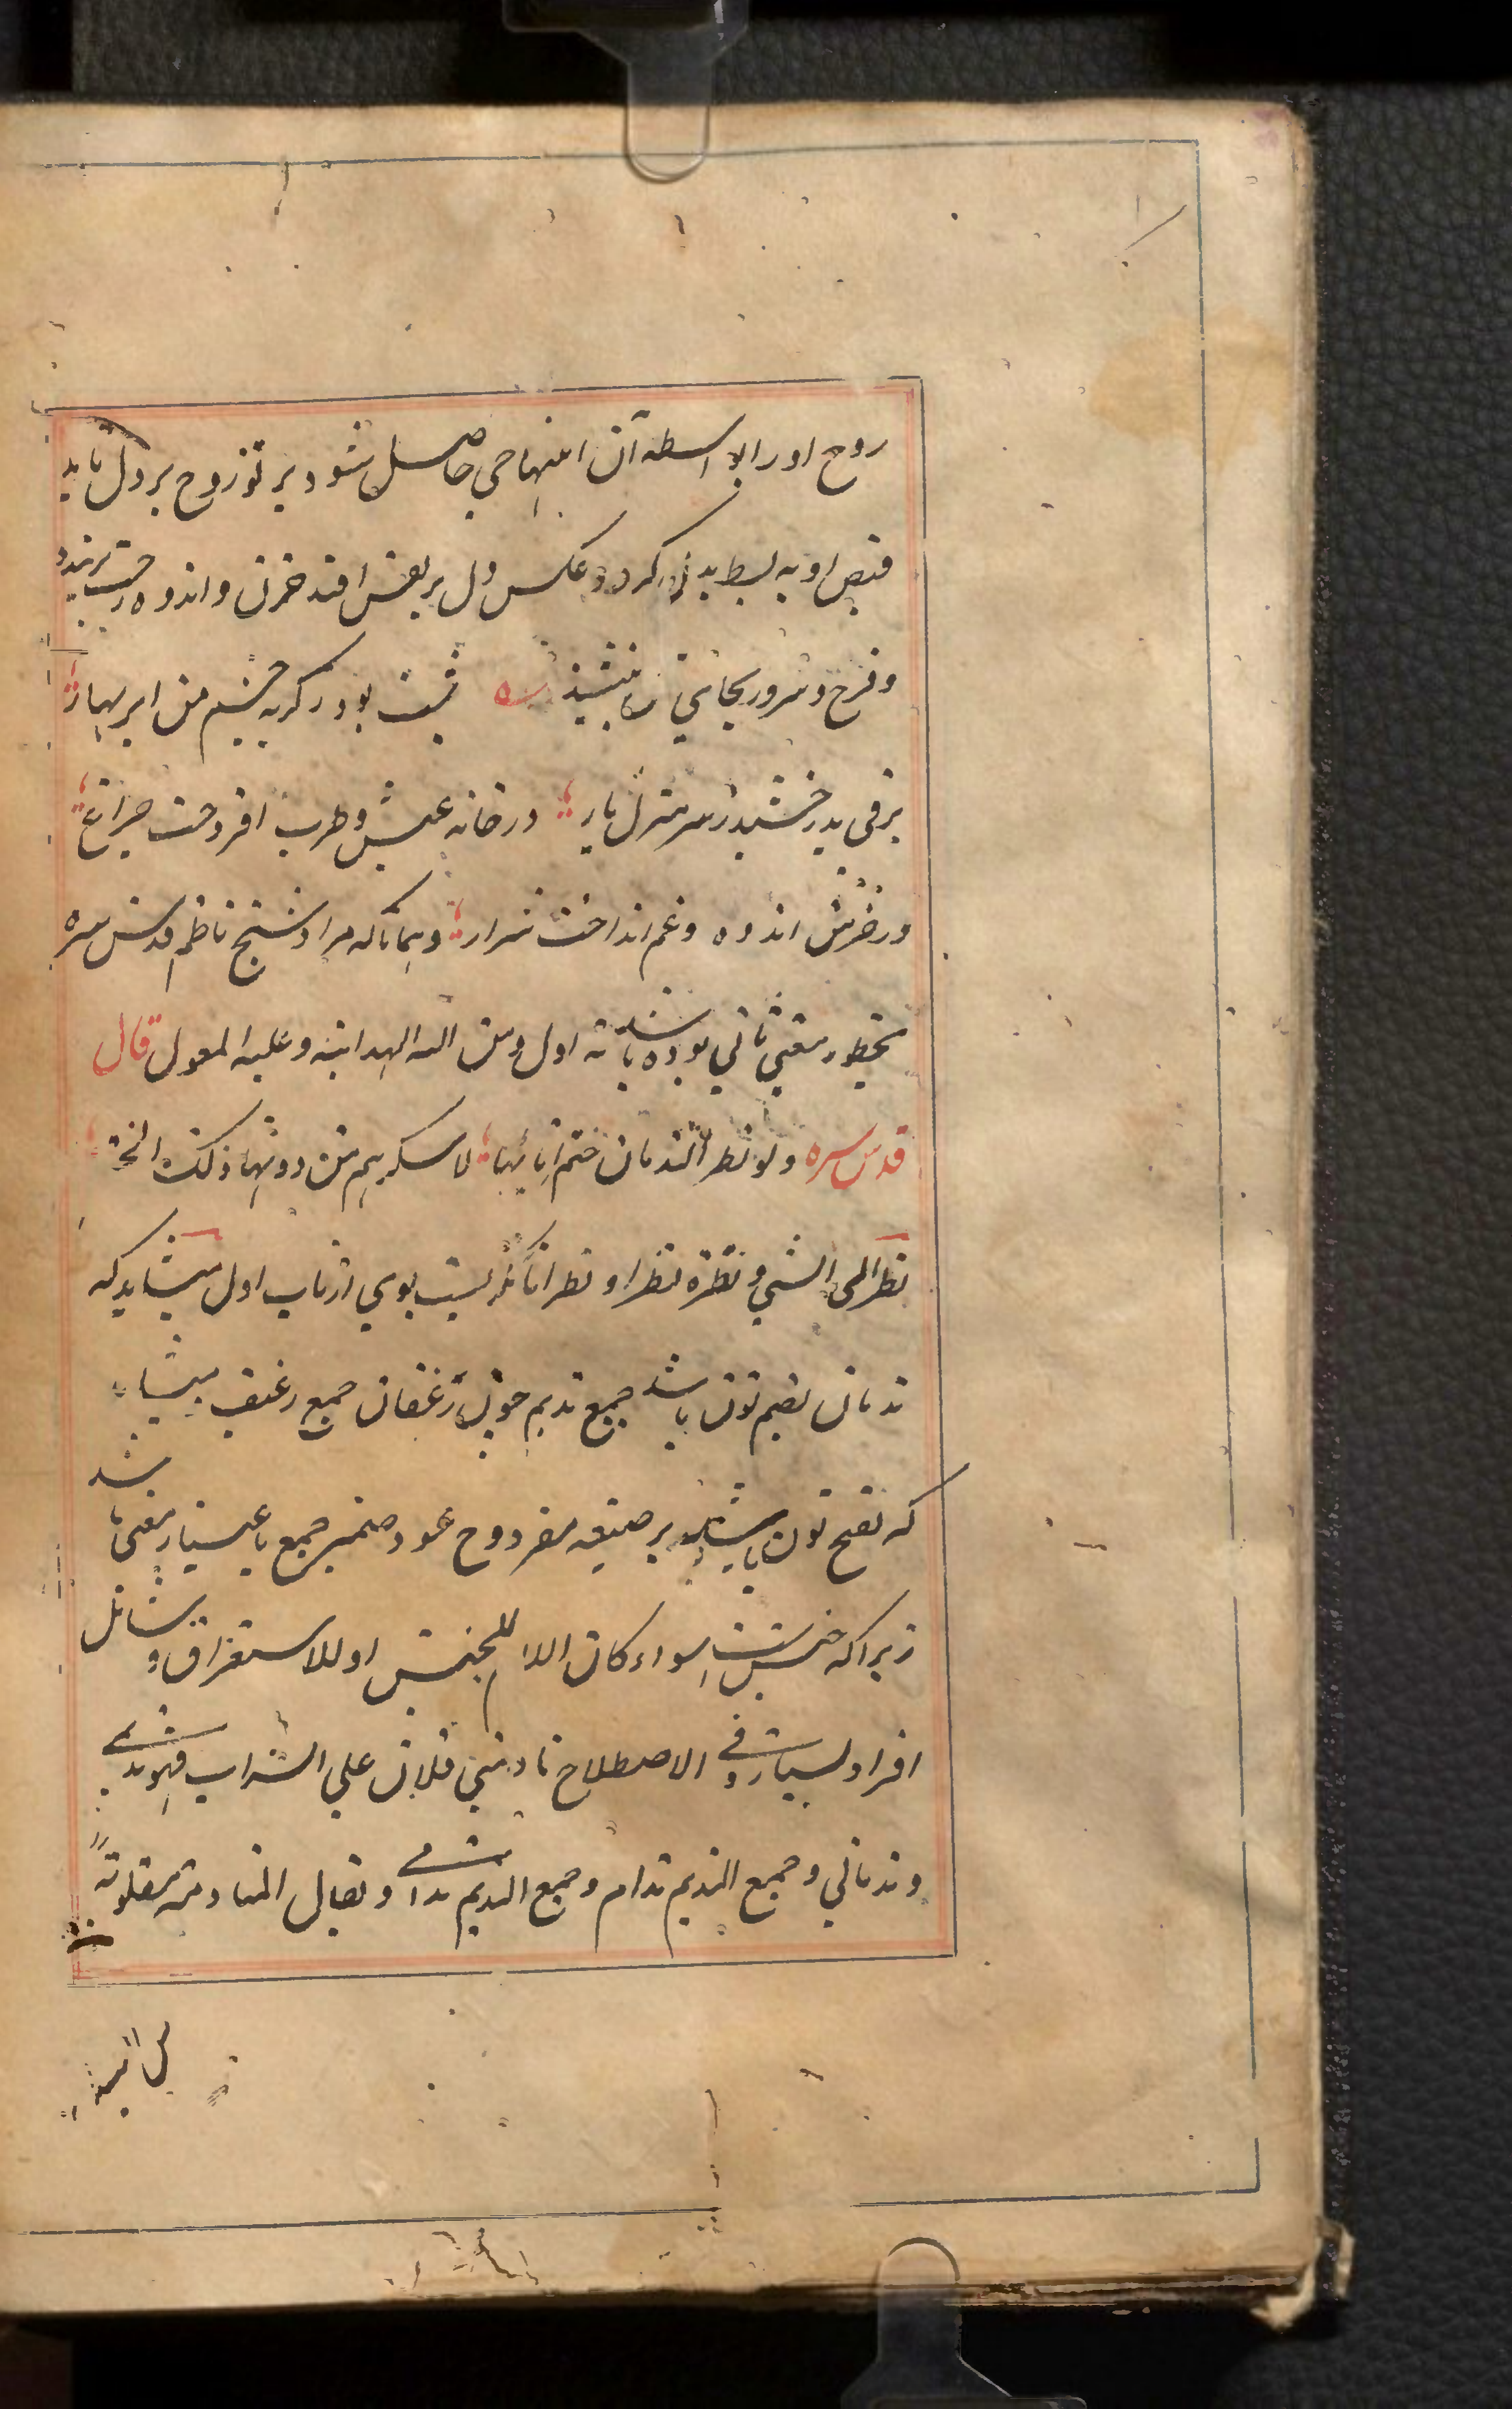 روح اورا بواسطه آن ابتهاجی حاصل شود پرتو روح بر دل تابد
قبض او به بسط بدل گردد و عکس دل بر نفس افتد حزن و اندوه رخت بربندد
و فرح و سرور بجای آن بنشیند شب بود ز گریه چشم من ابر بهار
برقی بدرخشید ز سر منزل یار در خانه عیش و طرب افروخت چراغ
در خرمن اندوه و غم انداخت شرار و همانا که مراد شیخ ناظم قدس سره
بخطور معنی ثانی بوده باشد نه اول و من الله الهدایة و علیه المعول قال
قدس سره ولو نظر الندمان ختم انائها لاسکرهم من دونها ذلک الختم
نظر الی الشیء و نظره نظرا و نظرانا نگریست بوی از باب اول میشاید که
ندمان بضم نون باشد جمع ندیم چون رغفان جمع رغیف میشاید
که بفتح نون باشد بر صیغه مفرد و ح عود ضمیر جمع باعتبار معنی باشد
زیرا که جنس است سواء کان اللام للجنس او للاستغراق و شامل
افراد بسیار و فی الاصطلاح نادمنی فلان علی الشراب فهو ندیمی
و ندمانی و جمع الندیم ندام و جمع الندیم ندامی و یقال المنادمة مقلوبة